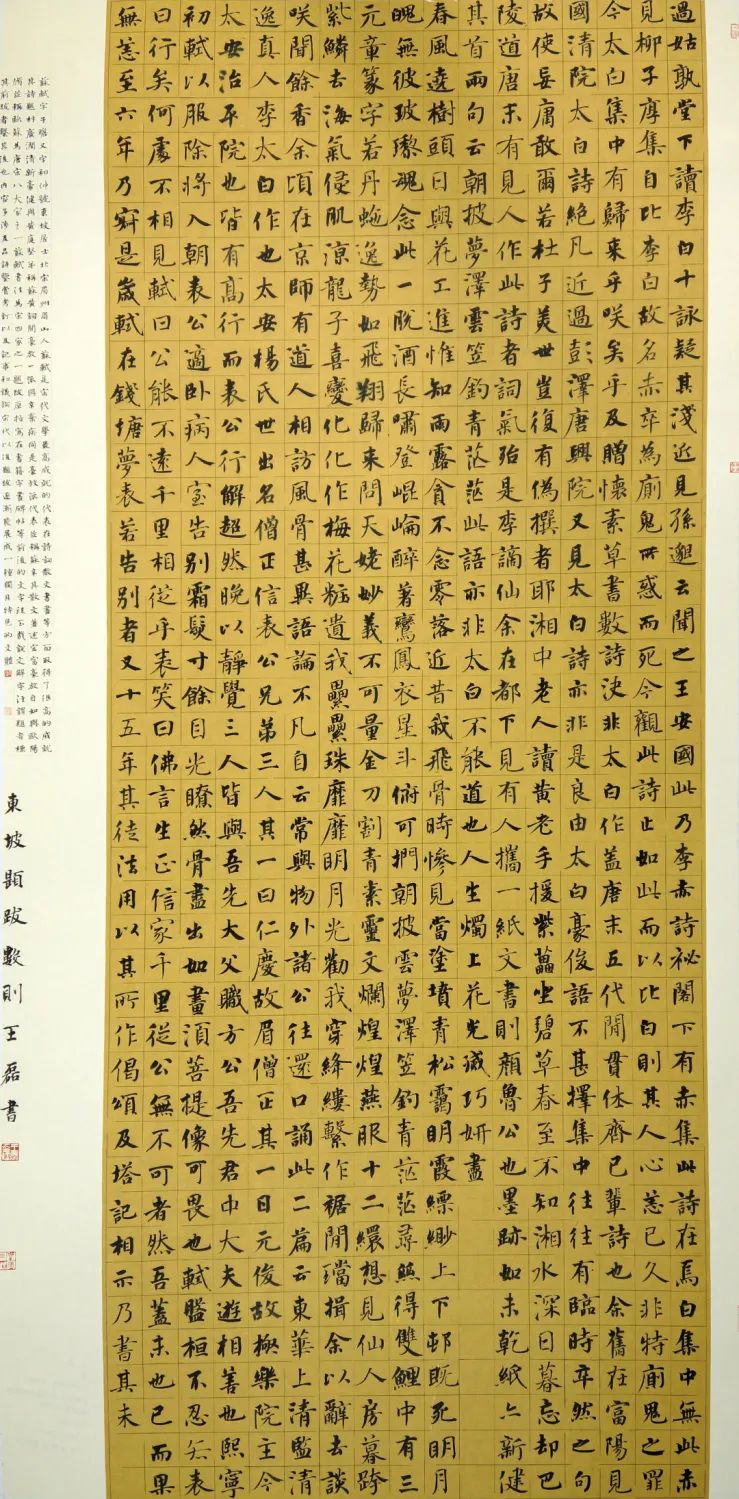 過姑孰堂下讀李白十詠疑其淺近見孫邈云聞之王安國此乃李赤詩祕閣下有赤集此詩在焉白集中無此赤
見柳子厚集自比李白故名赤卒為廁鬼所惑而死今觀此詩止如此而以比白則其人心恙已久非特廁鬼之罪
今太白集中有歸来乎咲矣乎及贈懷素草書數詩決非太白作盖唐末五代間貫休齊已輩詩也余舊在富陽見
國清院太白詩絕凡近過彭澤唐興院又見太白詩亦非是良由太白豪俊語不甚擇集中往往有臨時卒然之句
故使妄庸敢爾若杜子美世豈復有偽撰者耶湘中老人讀黃老手援紫藟坐碧草春至不知湘水深日暮忘却巴
陵道唐末有見人作此詩者詞氣殆是李謫仙余在都下見有人攜一紙文書則顏魯公也墨跡如未乾紙亦新健
其首兩句云朝披夢澤雲笠釣青茫茫此語亦非太白不能道也人生燭上花光滅巧妍盡
春風遶樹頭日與花工進惟知雨露貪不念零落近昔我飛骨時慘見當塗墳青松靄明霞縹緲上下邨既死明月
魄無彼玻瓈魂念此一脫洒長嘯登崐崘醉著鸞鳳衣星斗俯可捫朝披雲夢澤笠釣青茫茫尋絲得雙鯉中有三
元章篆字若丹虵逸勢如飛翔歸来問天姥妙義不可量金刀割青素靈文爛煌煌燕服十二纓想見仙人房暮跨
紫鱗去海氣侵肌涼龍子喜變化化作梅花粧遺我纍纍珠靡靡明月光勸我穿絳縷繫作裾間璫揖余以辭去談
咲聞餘香余頃在京師有道人相訪風骨甚異語論不凡自云常與物外諸公往還口誦此二篇云東華上清監清
逸真人李太白作也太安楊氏世出名僧正信表公兄弟三人其一曰仁慶故眉僧正其一曰元俊故極樂院主今
太安治平院也皆有高行而表公行解超然晚以靜覺三人皆與吾先大父職方公吾先君中大夫遊相善也熙寧
初軾以服除將入朝表公適卧病入室告別霜髮寸餘目光瞭然骨盡出如畫須菩提像可畏也軾盤桓不忍去表
曰行矣何處不相見軾曰公能不遠千里相從乎表笑曰佛言生正信家千里從公無不可者然吾蓋未也已而果
無恙至六年乃寂是歲軾在錢塘夢表若告別者又十五年其徒法用以其所作偈頌及塔記相示乃書其末
蘇軾字子瞻又字和仲號東坡居士北宋眉州眉山人蘇軾是宋代文學最高成就的代表在詩詞散文書畫等方面取得了很高的成就
其詩題材廣闊清新豪健與黃庭堅並稱蘇黃詞開豪放一派與辛棄疾同是豪放派代表並稱蘇辛其散文著述宏富豪放自如與歐陽
脩並稱歐蘇為唐宋八大家之一蘇軾書法為宋四家之一題跋原指寫在書籍字畫碑帖等前後的文字說文解字注謂題者標
其前跋者繫其後也内容多涉及品評鑒賞考訂以及記事和議論宋代以後題跋逐漸發展成一種獨具特色的文體
東坡題跋數則王磊書